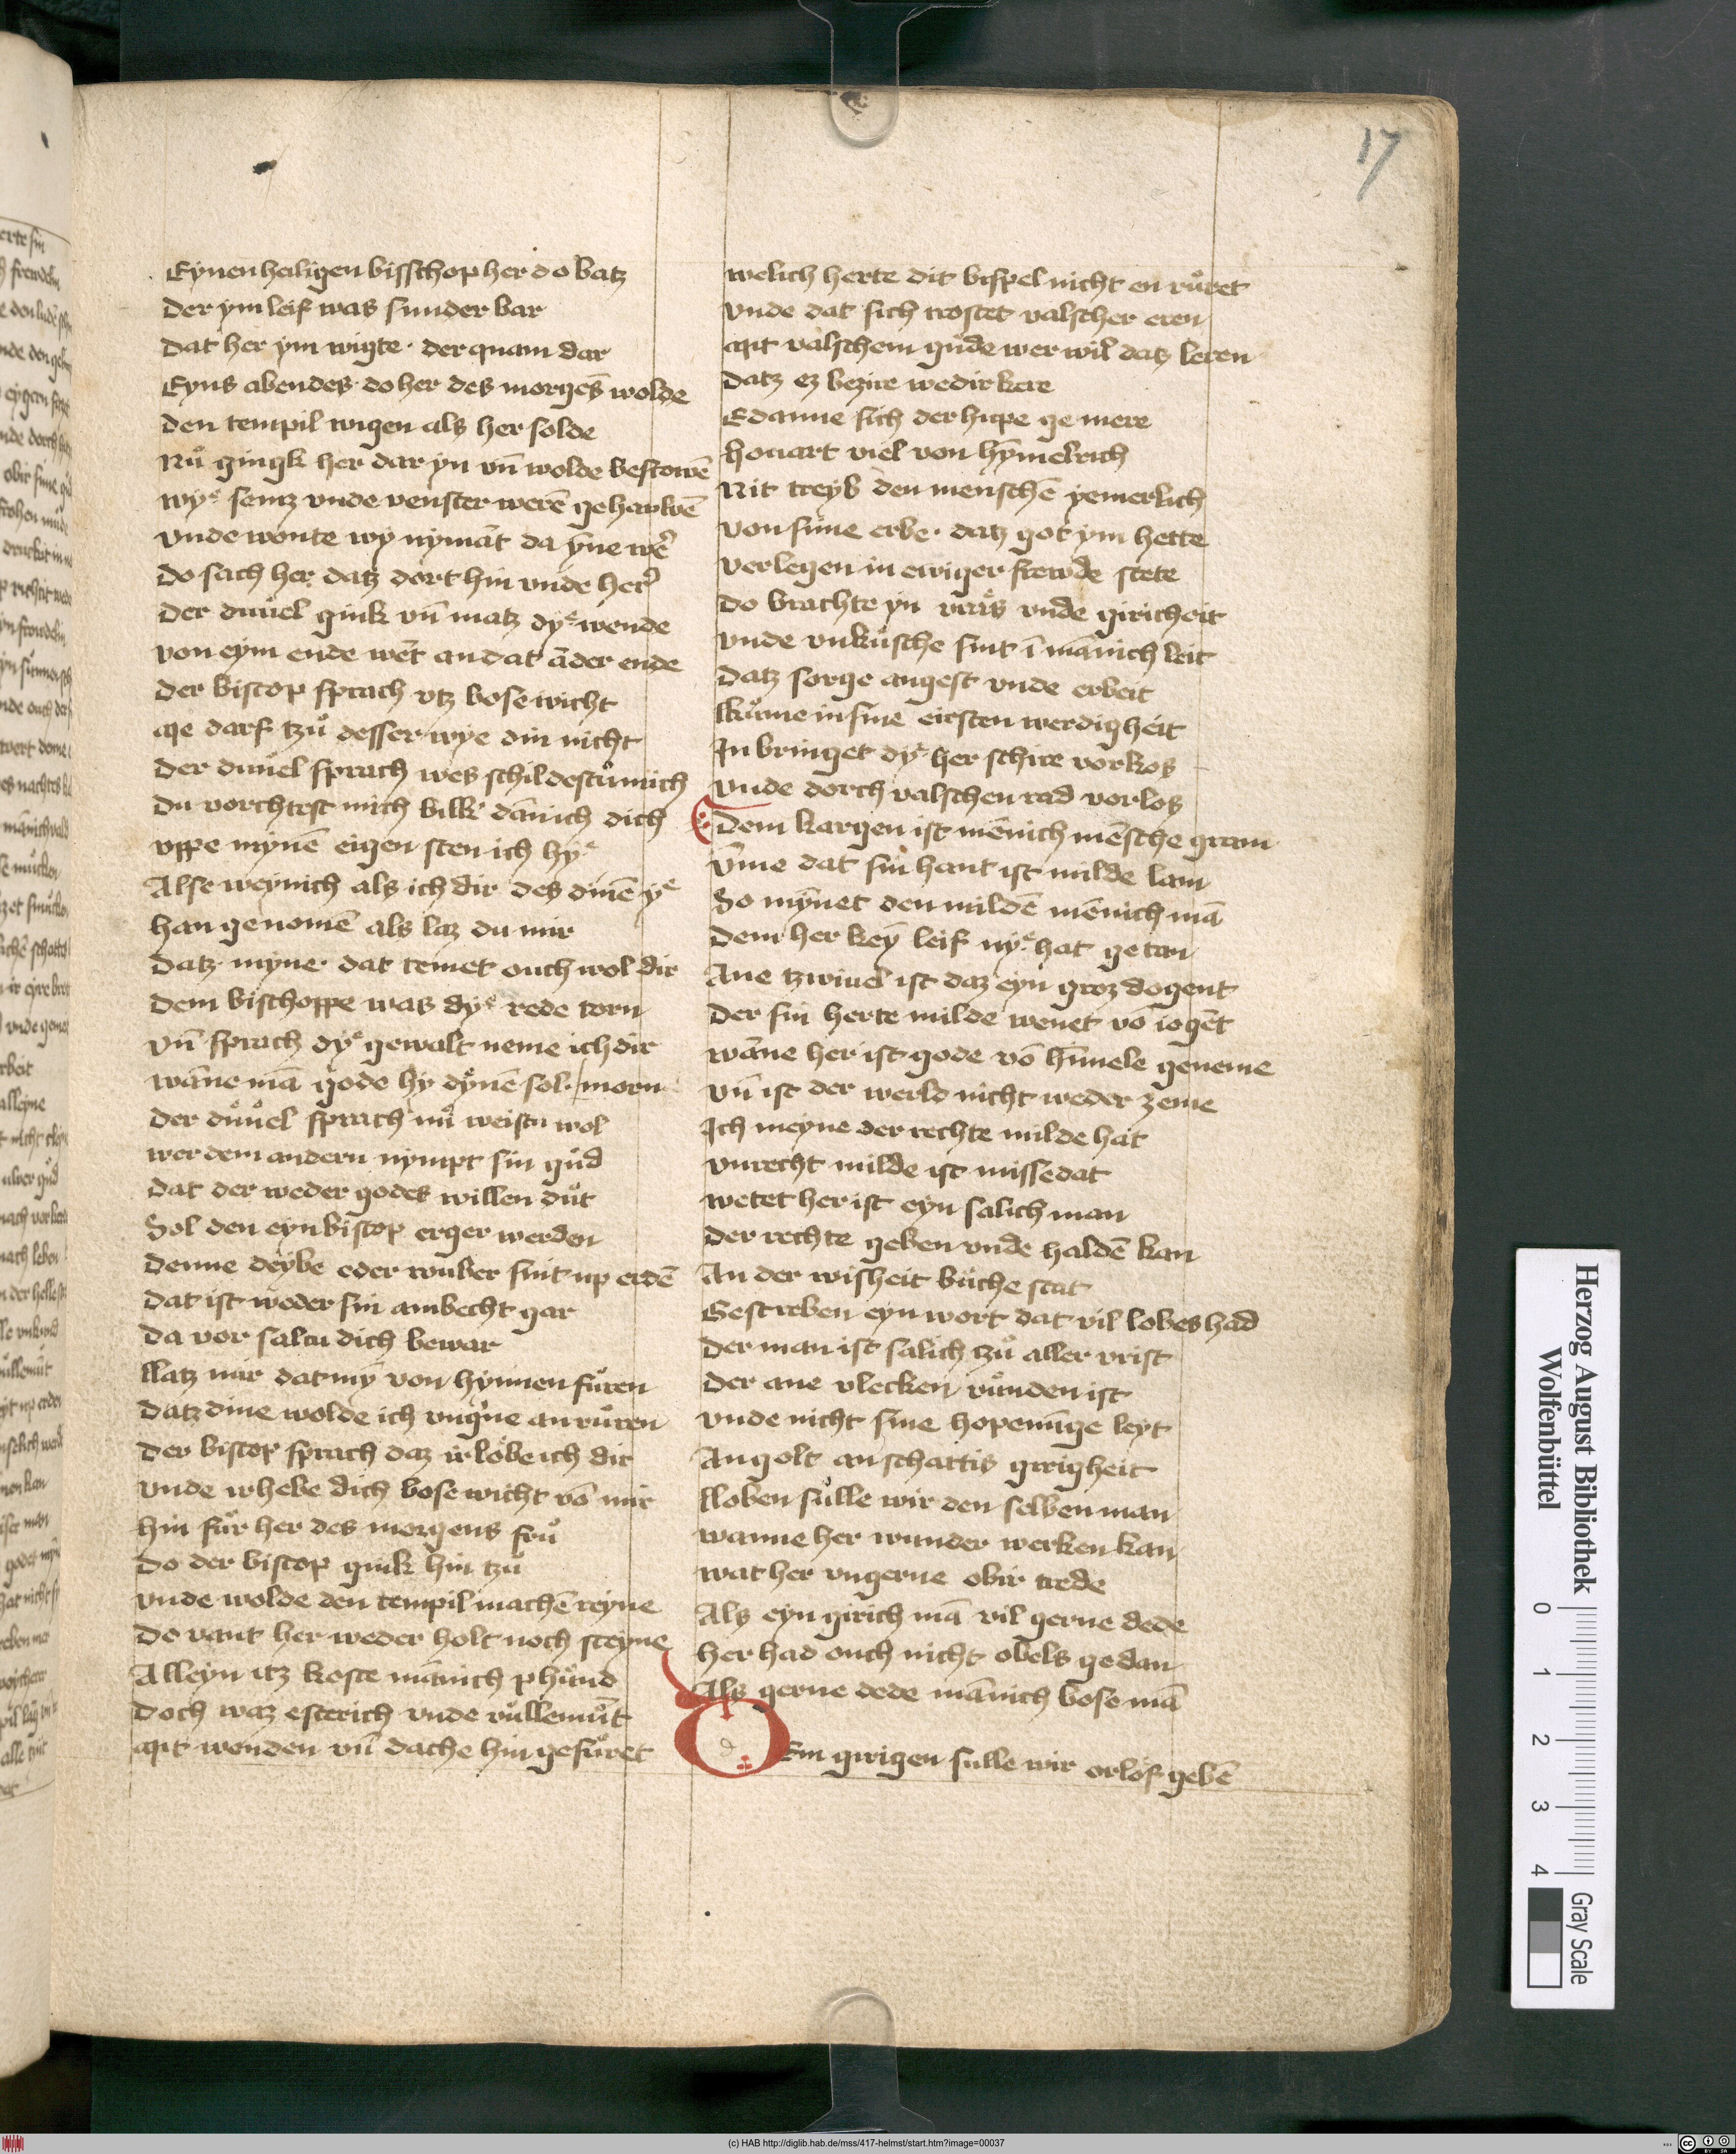 17
Eynen heiligen bisschop her do batz
Der ym leif was sunder bar
Dat her ym wigte · der quam dar
Eyns abendes · do her des morgēs wolde
Den tempil wigen als her solde
Nuͦ gingk her dar yn vn̄ wolde bescowē
Wyͤ sentz vnde venster werē gehauwē
Vnde wonte wy nymāt da ȳne wer̄
Do sach her datz dort hin vnde her̄
Der duuel gink vn̄ matz dyͤ wende
Von eym ende wēt an dat āder ende
Der biscop sprach vtz bose wicht
Me darf tzuͦ desser wye din nicht
Der duuel sprach wes schildestu mich
Du vorchtest mich bilk dān ich dich
Vppe mynē eigen sten ich hyͤ
Alse weynich als ich dir des dinē yͤ
Han genomē als laz du mir
Datz myne · dat temet ouch wol dir
Dem bischoppe was dyͤ rede torn
Vn̄ sprach dyͤ gewalt neme ich dir
Wāne mā gode hy dynē sol · morn
Der duͦuel sprach nuͦ weistu wol
Wer dem andern nympt sin guͦd
Dat der weder godes willen duͦt
Sol den eyn biscop erger werden
Denne deybe eder rouber sint up erdē
Dat ist weder sin ambecht gar
Da vor saltu dich bewar
Llatz mir dat my von hynnen fuͦren
Datz dine wolde ich vngne an ruͦren
Der biscop sprach daz irlobe ich dir
Vnde irhebe dich bose wicht vō mir
Hin fuͦr her des morgens fruͦ
Do der biscop gink hin tzuͦ
Vnde wolde den tempil machē reyne
Do vant her weder holt noch steyne
Alleyn itz koste mānich phuͦnd
Doch waz esterich vnde vuͦllemuͦt
Mit wenden vn̄ dache hin gefuͦret
Welich herte dit bispel nicht en ruͦret
Vnde dat sich trostet valscher eren
Mit valschem guͦde wer wil datz leren
Datz ez bezire wedir kere
Edanne sich der hupe ge mere
Houart viel von hȳmelrich
Nit treyb den menschē yemerlich
Von sime erbe · datz got ym hette
Verlegen in ewiger freude stete
Do brachte yn vraͤs vnde giricheit
Vnde vnkuͤsche sint ī mānich leit
Datz sorge angest vnde erbeit
Kuͦme in sine eirsten werdigheit
In bringet dyͤ her schire vorkos
Vnde dorch valschen rad vorlos
Dem kargen ist mēnich mēsche gram
Vme dat sin hant ist milde lam
So mȳnet den mildē mēnich mā
Dem her key leif nyͤ hat ge tan
Ane tzwiuel ist daz eyn groz dogent
Der sin herte milde wenet vō iogēt
Wāne her ist gode vō hīmele geneme
Vn̄ ist der werld nicht weder zeme
Ich meyne der rechte milde hat
Vnrecht milde ist missedat
Wetet her ist eyn salich man
Der rechte geben vnde haldē kan
An der wisheit buͤche stat
Gescreben eyn wort dat vil lobes had
Der man ist salich tzuͦ aller vrist
Der ane vlecken vuͦnden ist
Vnde nicht sine hopenūge leyt
An golt an schattis girigheit
Lloben suͦlle wir den selben man
Wanne her wunder werken kan
Wat her vngerne obir trede
Als eyn girich mā vil gerne dede
Her had ouch nicht obels gedan
Als gerne dede mānich bose mā
DEm girigen sulle wir orlof gebē
Herzog August Bibliothek
Wolfenbüttel
0 1 2 3 4
Gray Scale
(c) HAB http://diglib.hab.de/mss/417-helmst/start.htm?image=00037